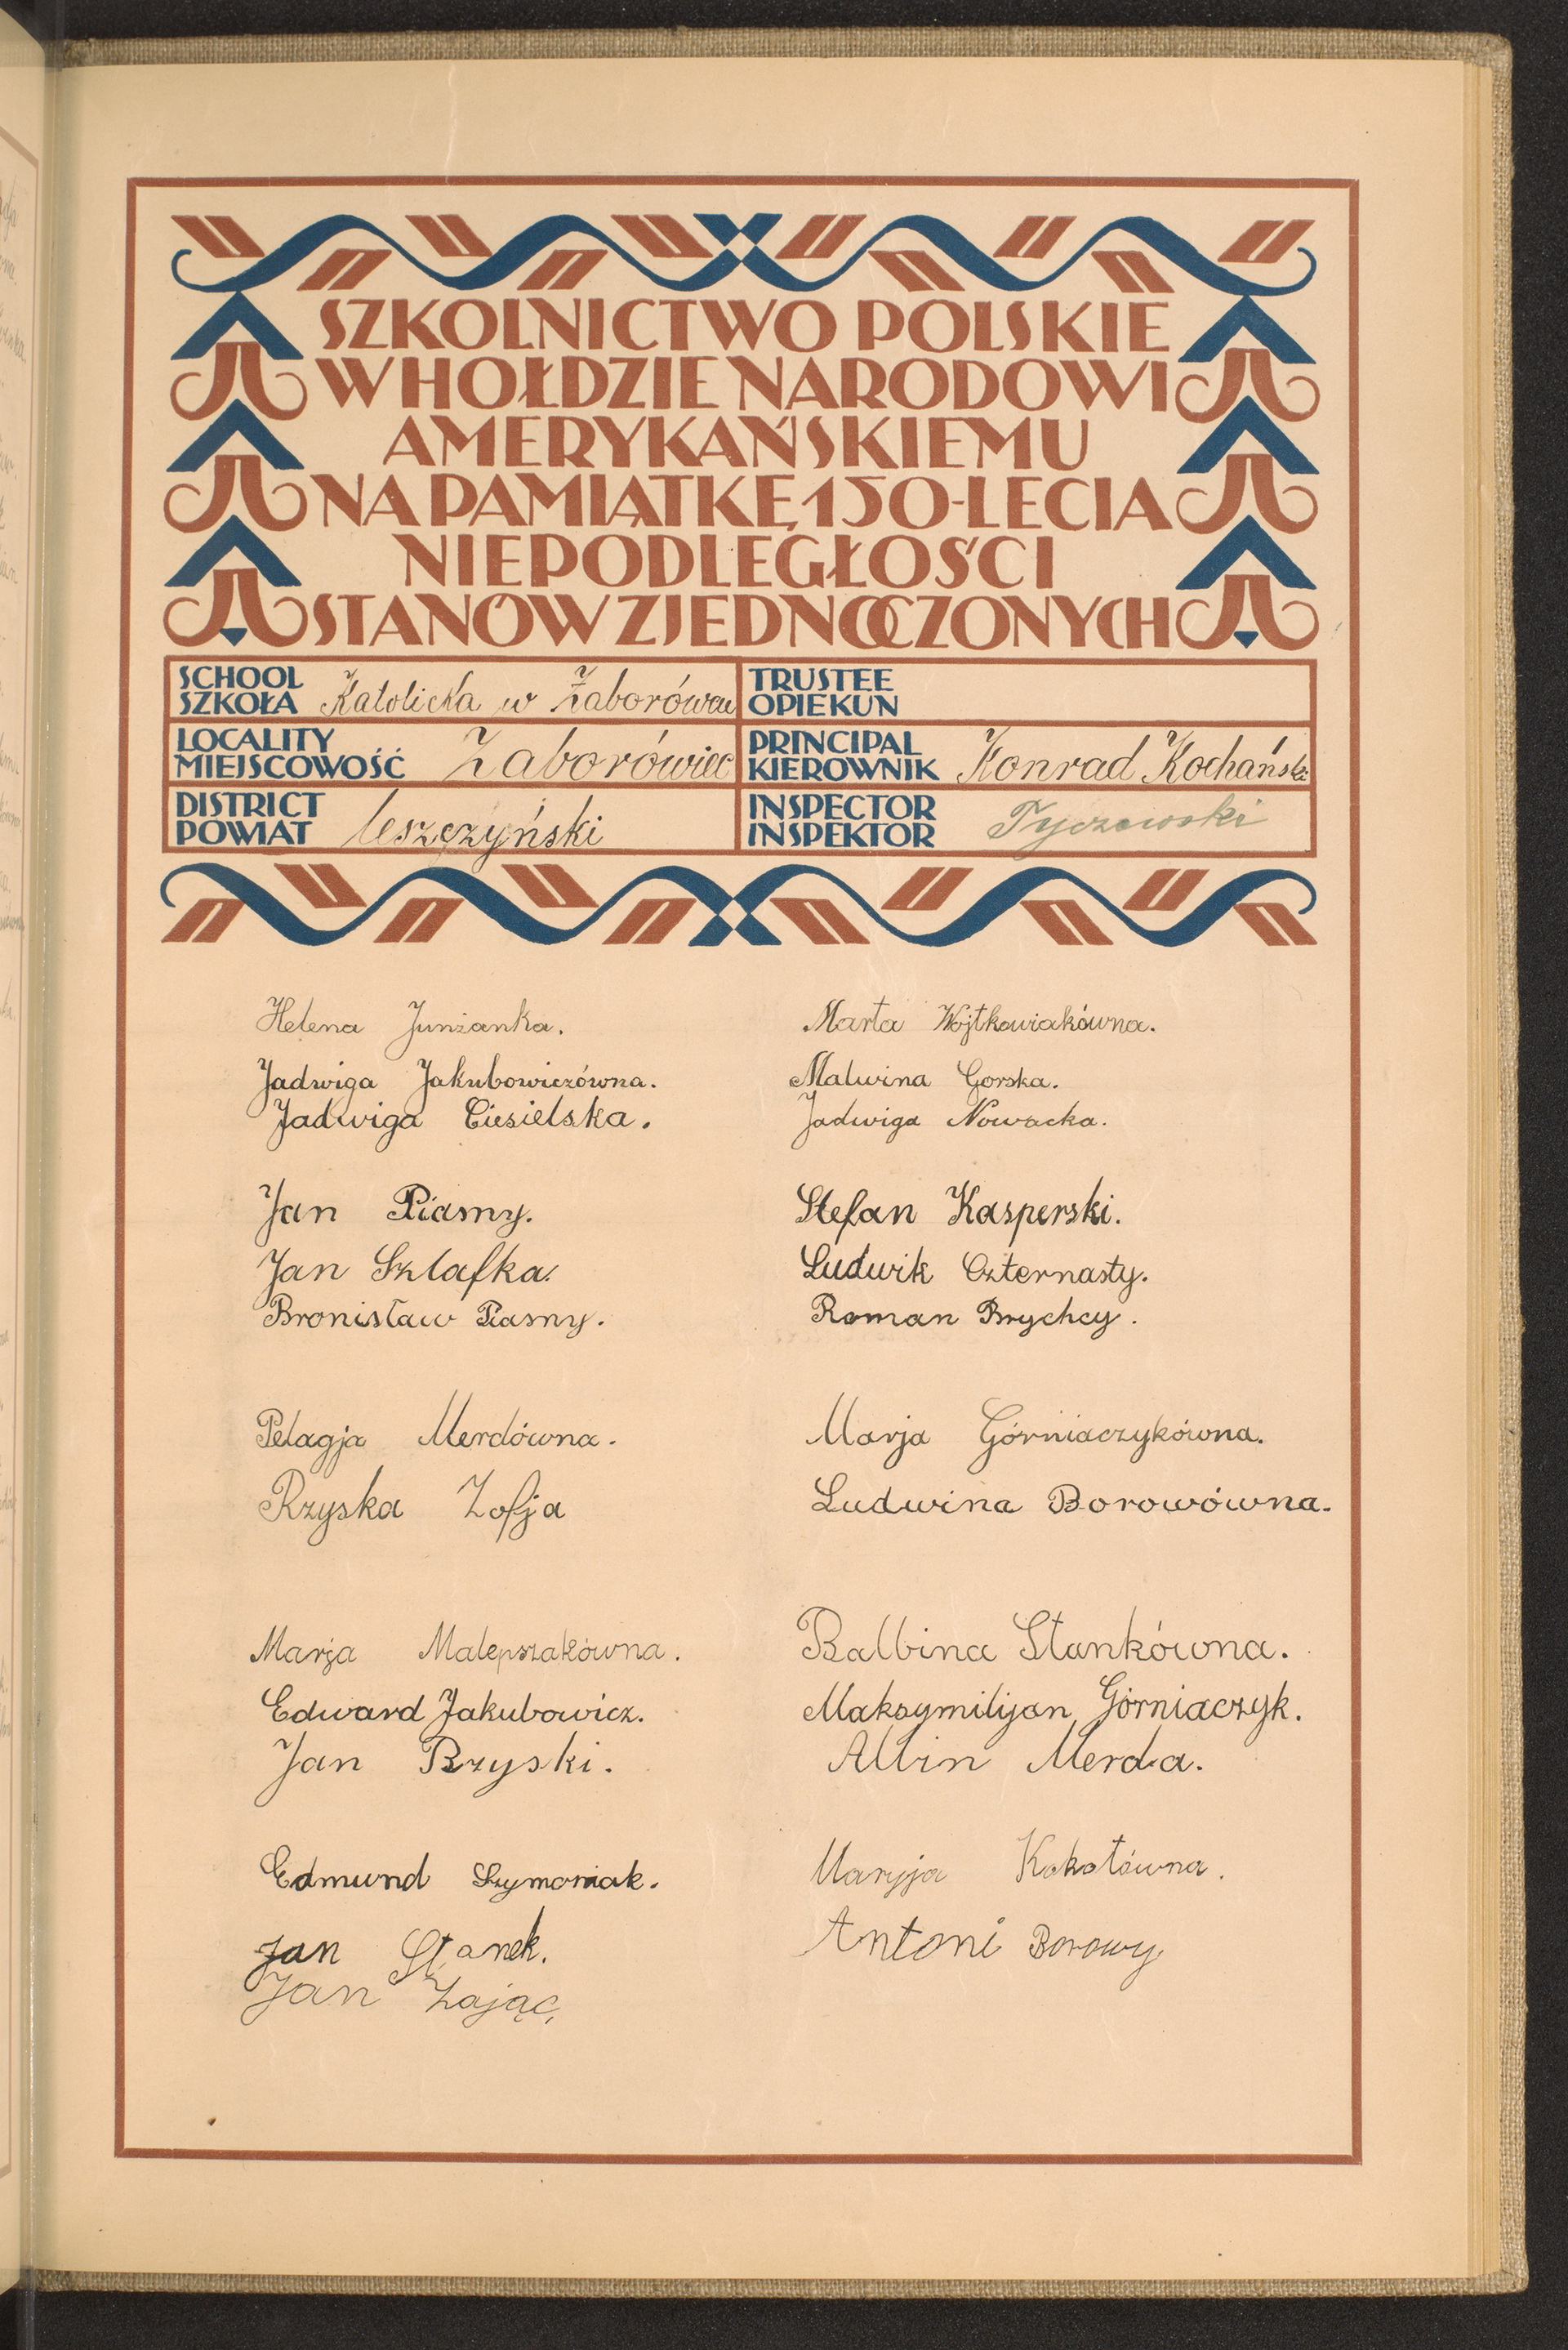 SZKOLNICTWO POLSKIE
W HOŁDZIE NARODOWI
AMERYKAŃSKIEMU
NA PAMIĄTKĘ 150-LECIA
NIEPODLEGŁOŚCI
STANÓW ZJEDNOCZONYCH
SCHOOL
SZKOŁA Katolicka w Zaborówcu
TRUSTEE
OPIEKUN
LOCALITY
MIEJSCOWOŚĆ Zaborówiec
PRINCIPAL
KIEROWNIK Konrad Kochański
DISTRICT
POWIAT leszczyński
INSPECTOR
INSPEKTOR Tyczewski
Helena Junżanka.
Jadwiga Jakubowiczówna.
Jadwiga Ciesielska.
Marta Wojtkowiakówna.
Malwina Gorska.
Jadwiga Nowacka.
Jan Piasny.
Jan Szlafka.
Bronisław Piasny.
Stefan Kasperski.
Ludwik Czternasty.
Roman Brychcy.
Pelagja Merdówna.
Rzyska Zofja
Marja Górniaczykówna.
Ludwina Borowówna.
Marja Malepszakówna.
Edward Jakubowicz.
Jan Rzyski.
Balbina Stankówna.
Maksymilijan Górniaczyk.
Albin Merda.
Edmund Szymoniak.
Jan Stanek.
Jan Zając,
Maryja Kokotówna.
Antoni Borowy